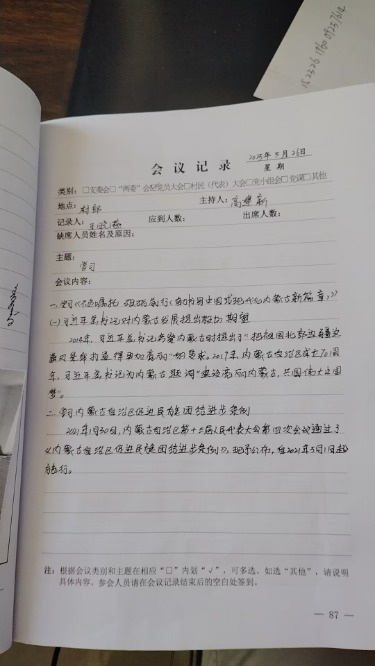 会议记录
2025年5月26日
星期
类别：□支委会□“两委”会☑党员大会□村民（代表）大会□党小组会□党课□其他
地点：村部
主持人：高建新
记录人：
应到人数：
出席人数：
缺席人员姓名及原因：
主题：
学习
会议内容：
一、学习《感恩嘱托 砥砺前行（奋力书写中国式现代化内蒙古新篇章）》
(一)习近平总书记对内蒙古发展提出殷切期望
2014年，习近平总书记考察内蒙古时提出了“把祖国北部边疆这
道风景线打造得更加亮丽”的要求。2017年，内蒙古自治区成立70周
年，习近平总书记为内蒙古题词“建设亮丽内蒙古，共圆伟大中国
梦”。
二、学习内蒙古自治区促进民族团结进步条例
2021年1月30日，内蒙古自治区第十三届人民代表大会第四次会议通过了
《内蒙古自治区促进民族团结进步条例》，现予公布，自2021年5月1日起
施行。
注：根据会议类别和主题在相应“□”内划“√”，可多选。如选“其他”，请说明
具体内容。参会人员请在会议记录结束后的空白处签到。
— 87 —